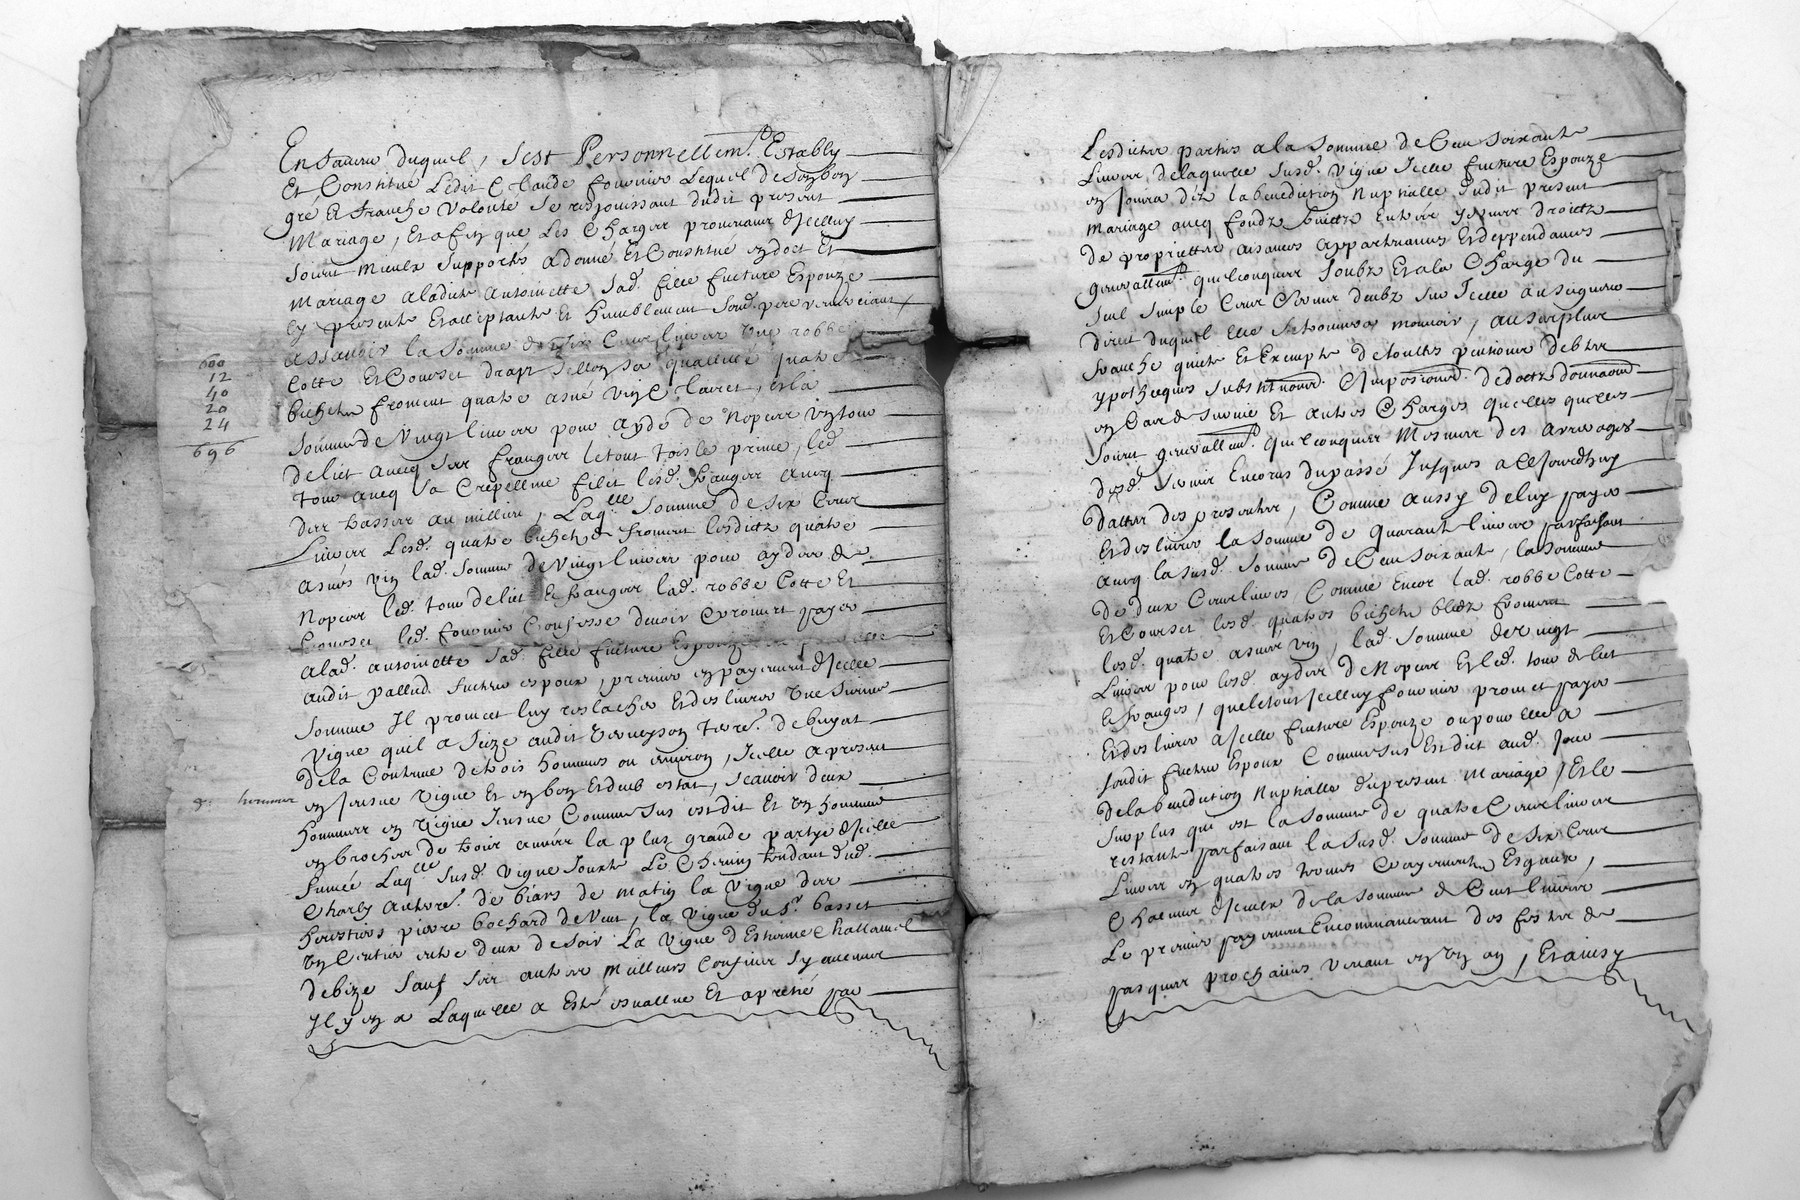 En faveur duquel, sest Personnellem.t Estably
Et Constitué Ledit Claude fournier Lequel de son bon
gré Et franche volonté se resjouissant dudit present
Mariage, Et afin que Les Charges provenant d'Icelluy
soient mieulx supportés a donné Et Constitué en doct Et
Mariage a ladicte Antoinette sad. fille future Espouze
cy presente Et acceptante Et humblement sond. pere remerciant
assavoir la somme de six Cent livres Une robbe
Cotte Et Corset drapt sellon sa quallité quatre
bichetz froment quatre asné vin Clairet, Et la
Somme de Vingt livres pour ayde de Nopces un tour
de lict avecq ses franges le tout
tour avecq sa Crepelline fillet lesd. franges avecq
au millieu, Laq.lle Somme de six Cent
Livres Lesd. quatre bichetz de froment lesdictz quatre
asnés vin lad. somme de Vingt livres pour aydes de
Nopces led. tour de lict Et franges lad. robbe Cotte Et
Corset led. fournier Confesse devoir Et promect payer
a lad. Antoinette sad. fille future Espouze
audit pallud. futur espoux, premier en payement d'Icelle
somme Il promect luy reslacher Et deslivrer Une sienne
vigne quil a size audit Verneyson terre.
de la Contenue de trois hommes ou environ, Icelle a present
en jeusne vigne Et en bon Et deub estat, scavoir deux
600
12
40
20
24
696
hommes
hommes en Vigne jeusne Comme sus est dit Et un homme
en la plus grande partye d'Icelle
fumée Laq.lle susd. vigne Jouxte Le Chemin tendant dud.
Charly de matin la vigne des
heretiers pierre bochard de Vent, la vigne du s.r basset
un sentier entre deux de soir La vigne d'Estienne Challamel
de bize sauf ses autres meilleurs Confins sy aucuns
Il y en a Laquelle a Esté esvallue Et apretié par
Lesdictes parties a la somme de Cent soixante
Livres de laquelle susd. vigne Icelle future Espouze
en Jouira dez la benediction Nuptialle dudit present
Mariage avecq fondz fruictz Entrées yssues droictz
de proprietter aisances appartenances Et deppendances
generallem.t quelconques soubz Et a la Charge du
seul simple Cens Servis deubz sur Icelle au seigneur
direct duquel elle se trouvera mouvoir, au surplus
franche quicte Et Exempte de touttes pentions debtes
ypotheques substitutions Impositions de doctz donnations
Et autres Charges quelles quelles
soient generallem.t quelconques Mesmes des arrerages
desd. servis Encorus du passé Jusques a ce jourdhuy
datte des presentes, Comme aussy de luy payer
Et deslivrer la somme de quarante livres parfaisant
avecq la susd. somme de Cent soixante, la somme
de deux Cent livres, Comme Encor lad. robbe Cotte
Et Corset lesd. quatres bichetz bledz froment
lesd. quatre asnées vin, lad. somme de Vingt
Livres pour lesd. aydes de Nopces Et led. tour de lict
Et franges, que le tout Icelluy fournier promect payer
Et deslivrer a Icelle future Espouze ou pour Elle a
sondit futur Espoux Comme sus Est dict aud. Jour
de la benediction Nuptialle du present Mariage, Et le
surplus qui est la somme de quatre Cent livres
restante parfaisant la susd. somme de six Cent
Livres en quatres termes Et payements Esgaux,
Chacun d'Iceulx de la somme de Cent livres
Le premier payement Encommancant des festes de
pasques prochaines venant en un an, Et ainsy